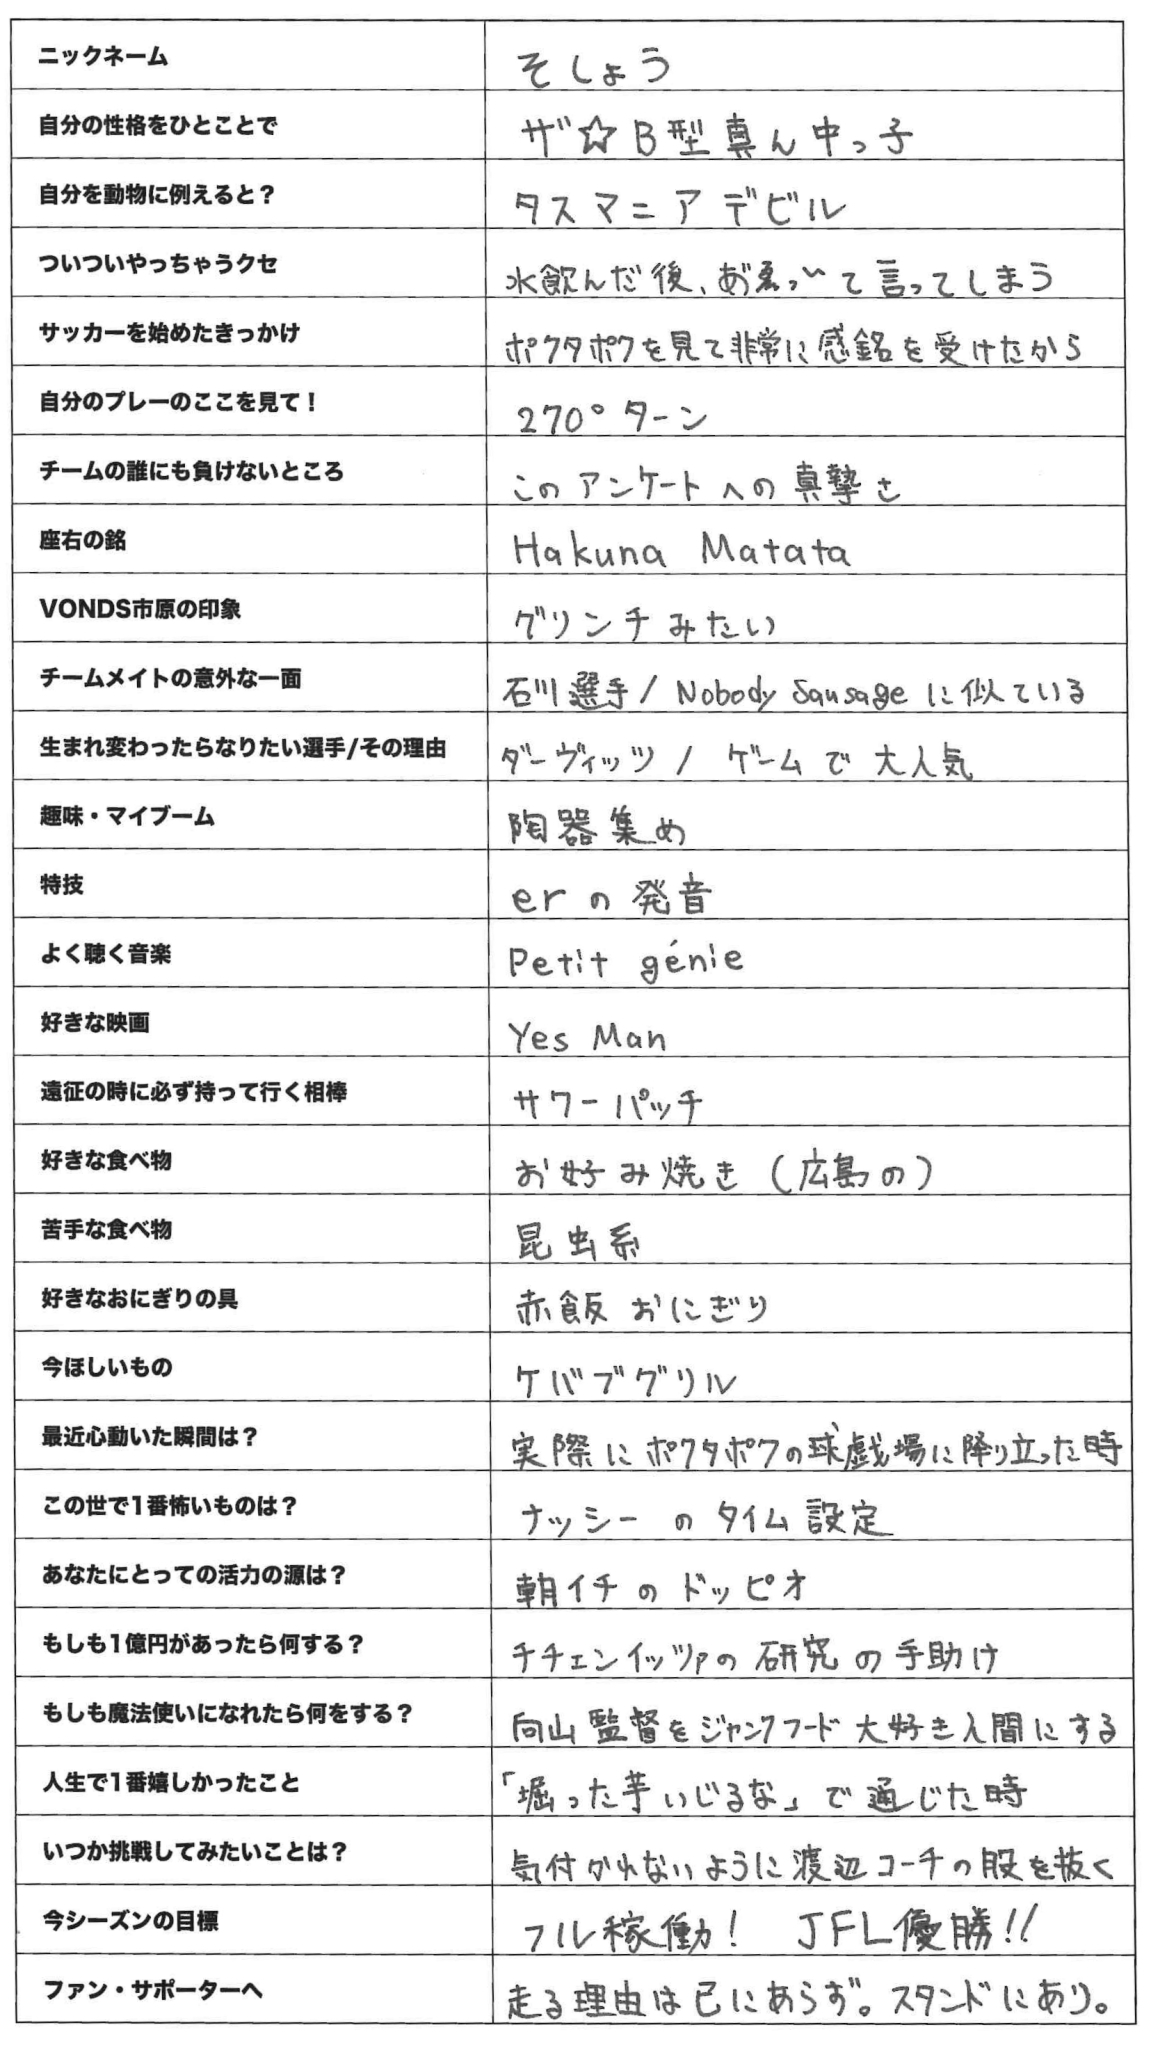 ニックネーム
そしょう
自分の性格をひとことで
ザ☆B型真ん中っ子
自分を動物に例えると？
タスマニアデビル
ついついやっちゃうクセ
水飲んだ後、あ゙ゑっ〜て言ってしまう
サッカーを始めたきっかけ
ポクタポクを見て非常に感銘を受けたから
自分のプレーのここを見て！
270°ターン
チームの誰にも負けないところ
このアンケートへの真摯さ
座右の銘
Hakuna Matata
VONDS市原の印象
グリンチみたい
チームメイトの意外な一面
石川選手/Nobody Sausageに似ている
生まれ変わったらなりたい選手/その理由
ダーヴィッツ/ゲームで大人気
趣味・マイブーム
陶器集め
特技
erの発音
よく聴く音楽
Petit génie
好きな映画
Yes Man
遠征の時に必ず持って行く相棒
サワーパッチ
好きな食べ物
お好み焼き（広島の）
苦手な食べ物
昆虫系
好きなおにぎりの具
赤飯おにぎり
今ほしいもの
ケバブグリル
最近心動いた瞬間は？
実際にポクタポクの球戯場に降り立った時
この世で1番怖いものは？
ナッシーのタイム設定
あなたにとっての活力の源は？
朝イチのドッピオ
もしも1億円があったら何する？
チチェンイッツァの研究の手助け
もしも魔法使いになれたら何をする？
向山監督をジャンクフード大好き人間にする
人生で1番嬉しかったこと
「堀った芋いじるな」で通じた時
いつか挑戦してみたいことは？
気付かれないように渡辺コーチの股を抜く
今シーズンの目標
フル稼働！ JFL優勝!!
ファン・サポーターへ
走る理由は己にあらず。スタンドにあり。